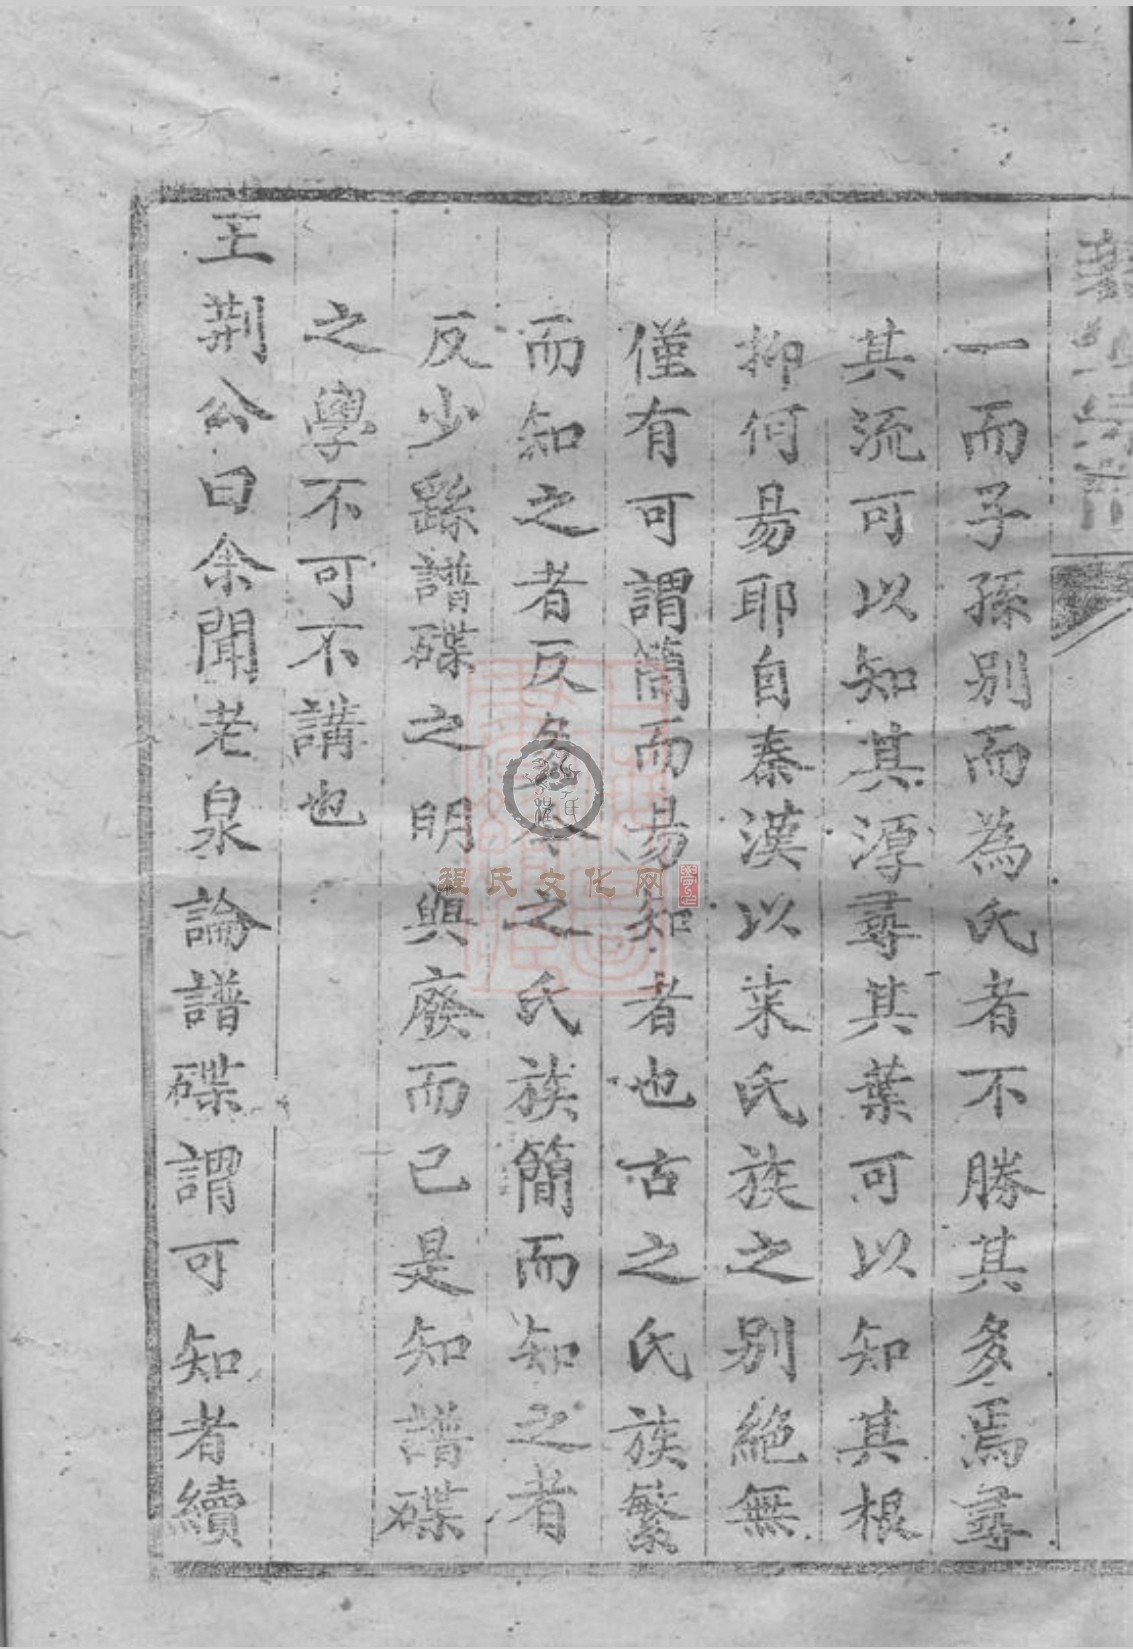 一而子孫別而為氏者不勝其多焉尋
其流可以知其源尋其葉可以知其根
抑何易耶自秦漢以来氏族之別絶無
僅有可謂簡而易知者也古之氏族繁
而知之者反多今之氏族簡而知之者
反少繇譜碟之明與廢而已是知譜碟
之學不可不講也
王荆公曰余聞老泉論譜碟謂可知者續
程氏文化网